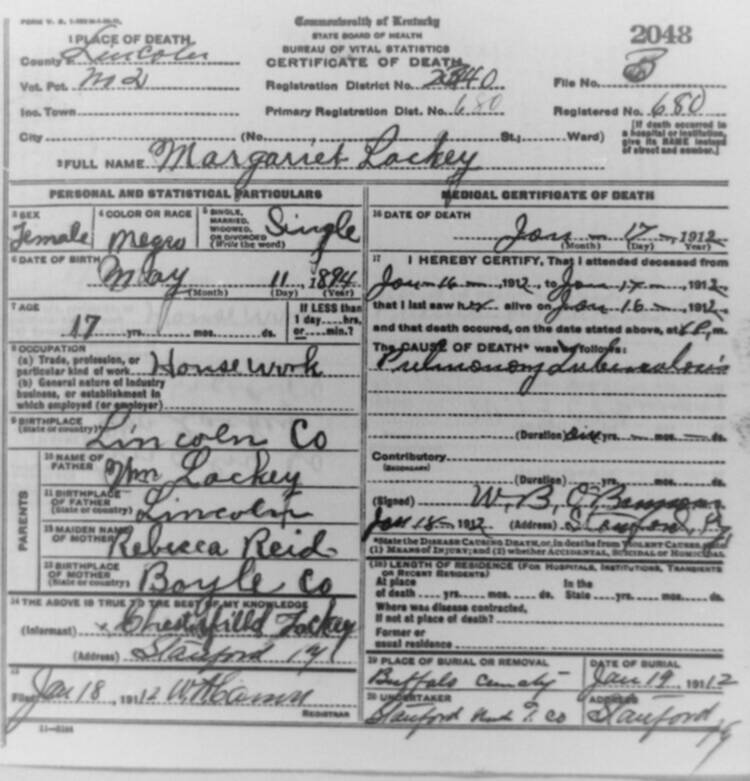 Commonwealth of Kentucky
STATE BOARD OF HEALTH
BUREAU OF VITAL STATISTICS
CERTIFICATE OF DEATH
2048
1 PLACE OF DEATH
County Lincoln
Vot. Pct. M 2
Inc. Town
City (No. St.; Ward)
Registration District No. 2340
Primary Registration Dist. No. 680
File No.
Registered No. 680
[If death occurred in
a hospital or institution,
give its NAME instead
of street and number.]
2 FULL NAME Margariet Lackey
PERSONAL AND STATISTICAL PARTICULARS
3 SEX Female
4 COLOR OR RACE Negro
5 SINGLE, MARRIED, WIDOWED, OR DIVORCED (Write the word) Single
6 DATE OF BIRTH May 11, 1894
(Month) (Day) (Year)
7 AGE 17 yrs. mos. ds.
If LESS than
1 day hrs.
or min.?
8 OCCUPATION
(a) Trade, profession, or
particular kind of work House work
(b) General nature of industry
business, or establishment in
which employed (or employer)
9 BIRTHPLACE
(State or country) Lincoln Co
PARENTS
10 NAME OF FATHER Wm Lackey
11 BIRTHPLACE OF FATHER (State or country) Lincoln
12 MAIDEN NAME OF MOTHER Rebecca Reid
13 BIRTHPLACE OF MOTHER (State or country) Boyle Co
14 THE ABOVE IS TRUE TO THE BEST OF MY KNOWLEDGE
(Informant) Chesterfield Lackey
(Address) Stanford Ky
15
Filed Jan 18, 1912
REGISTRAR
MEDICAL CERTIFICATE OF DEATH
16 DATE OF DEATH
Jan - 17 - 1912
(Month) (Day) (Year)
17 I HEREBY CERTIFY, That I attended deceased from
Jan 16, 1912, to Jan 17, 1912,
that I last saw her alive on Jan 16, 1912,
and that death occured, on the date stated above, at m.
The CAUSE OF DEATH* was as follows:
Pulmonary Tuberculosis
(Duration) yrs. mos. ds.
Contributory
(SECONDARY)
(Duration) yrs. mos. ds.
(Signed) W. B. O'Bannon
Jan 18 - 1912 (Address) Stanford, Ky
*State the DISEASE CAUSING DEATH, or, in deaths from VIOLENT CAUSES,
(1) MEANS OF INJURY; and (2) whether ACCIDENTAL, SUICIDAL OR HOMICIDAL
(18) LENGTH OF RESIDENCE (FOR HOSPITALS, INSTITUTIONS, TRANSIENTS
OR RECENT RESIDENTS)
At place of death yrs. mos. ds. In the State yrs. mos. ds.
Where was disease contracted,
If not at place of death?
Former or
usual residence
19 PLACE OF BURIAL OR REMOVAL
Buffalo Cemetery
DATE OF BURIAL
Jan 19, 1912
20 UNDERTAKER
Stanford Co
ADDRESS
Stanford Ky